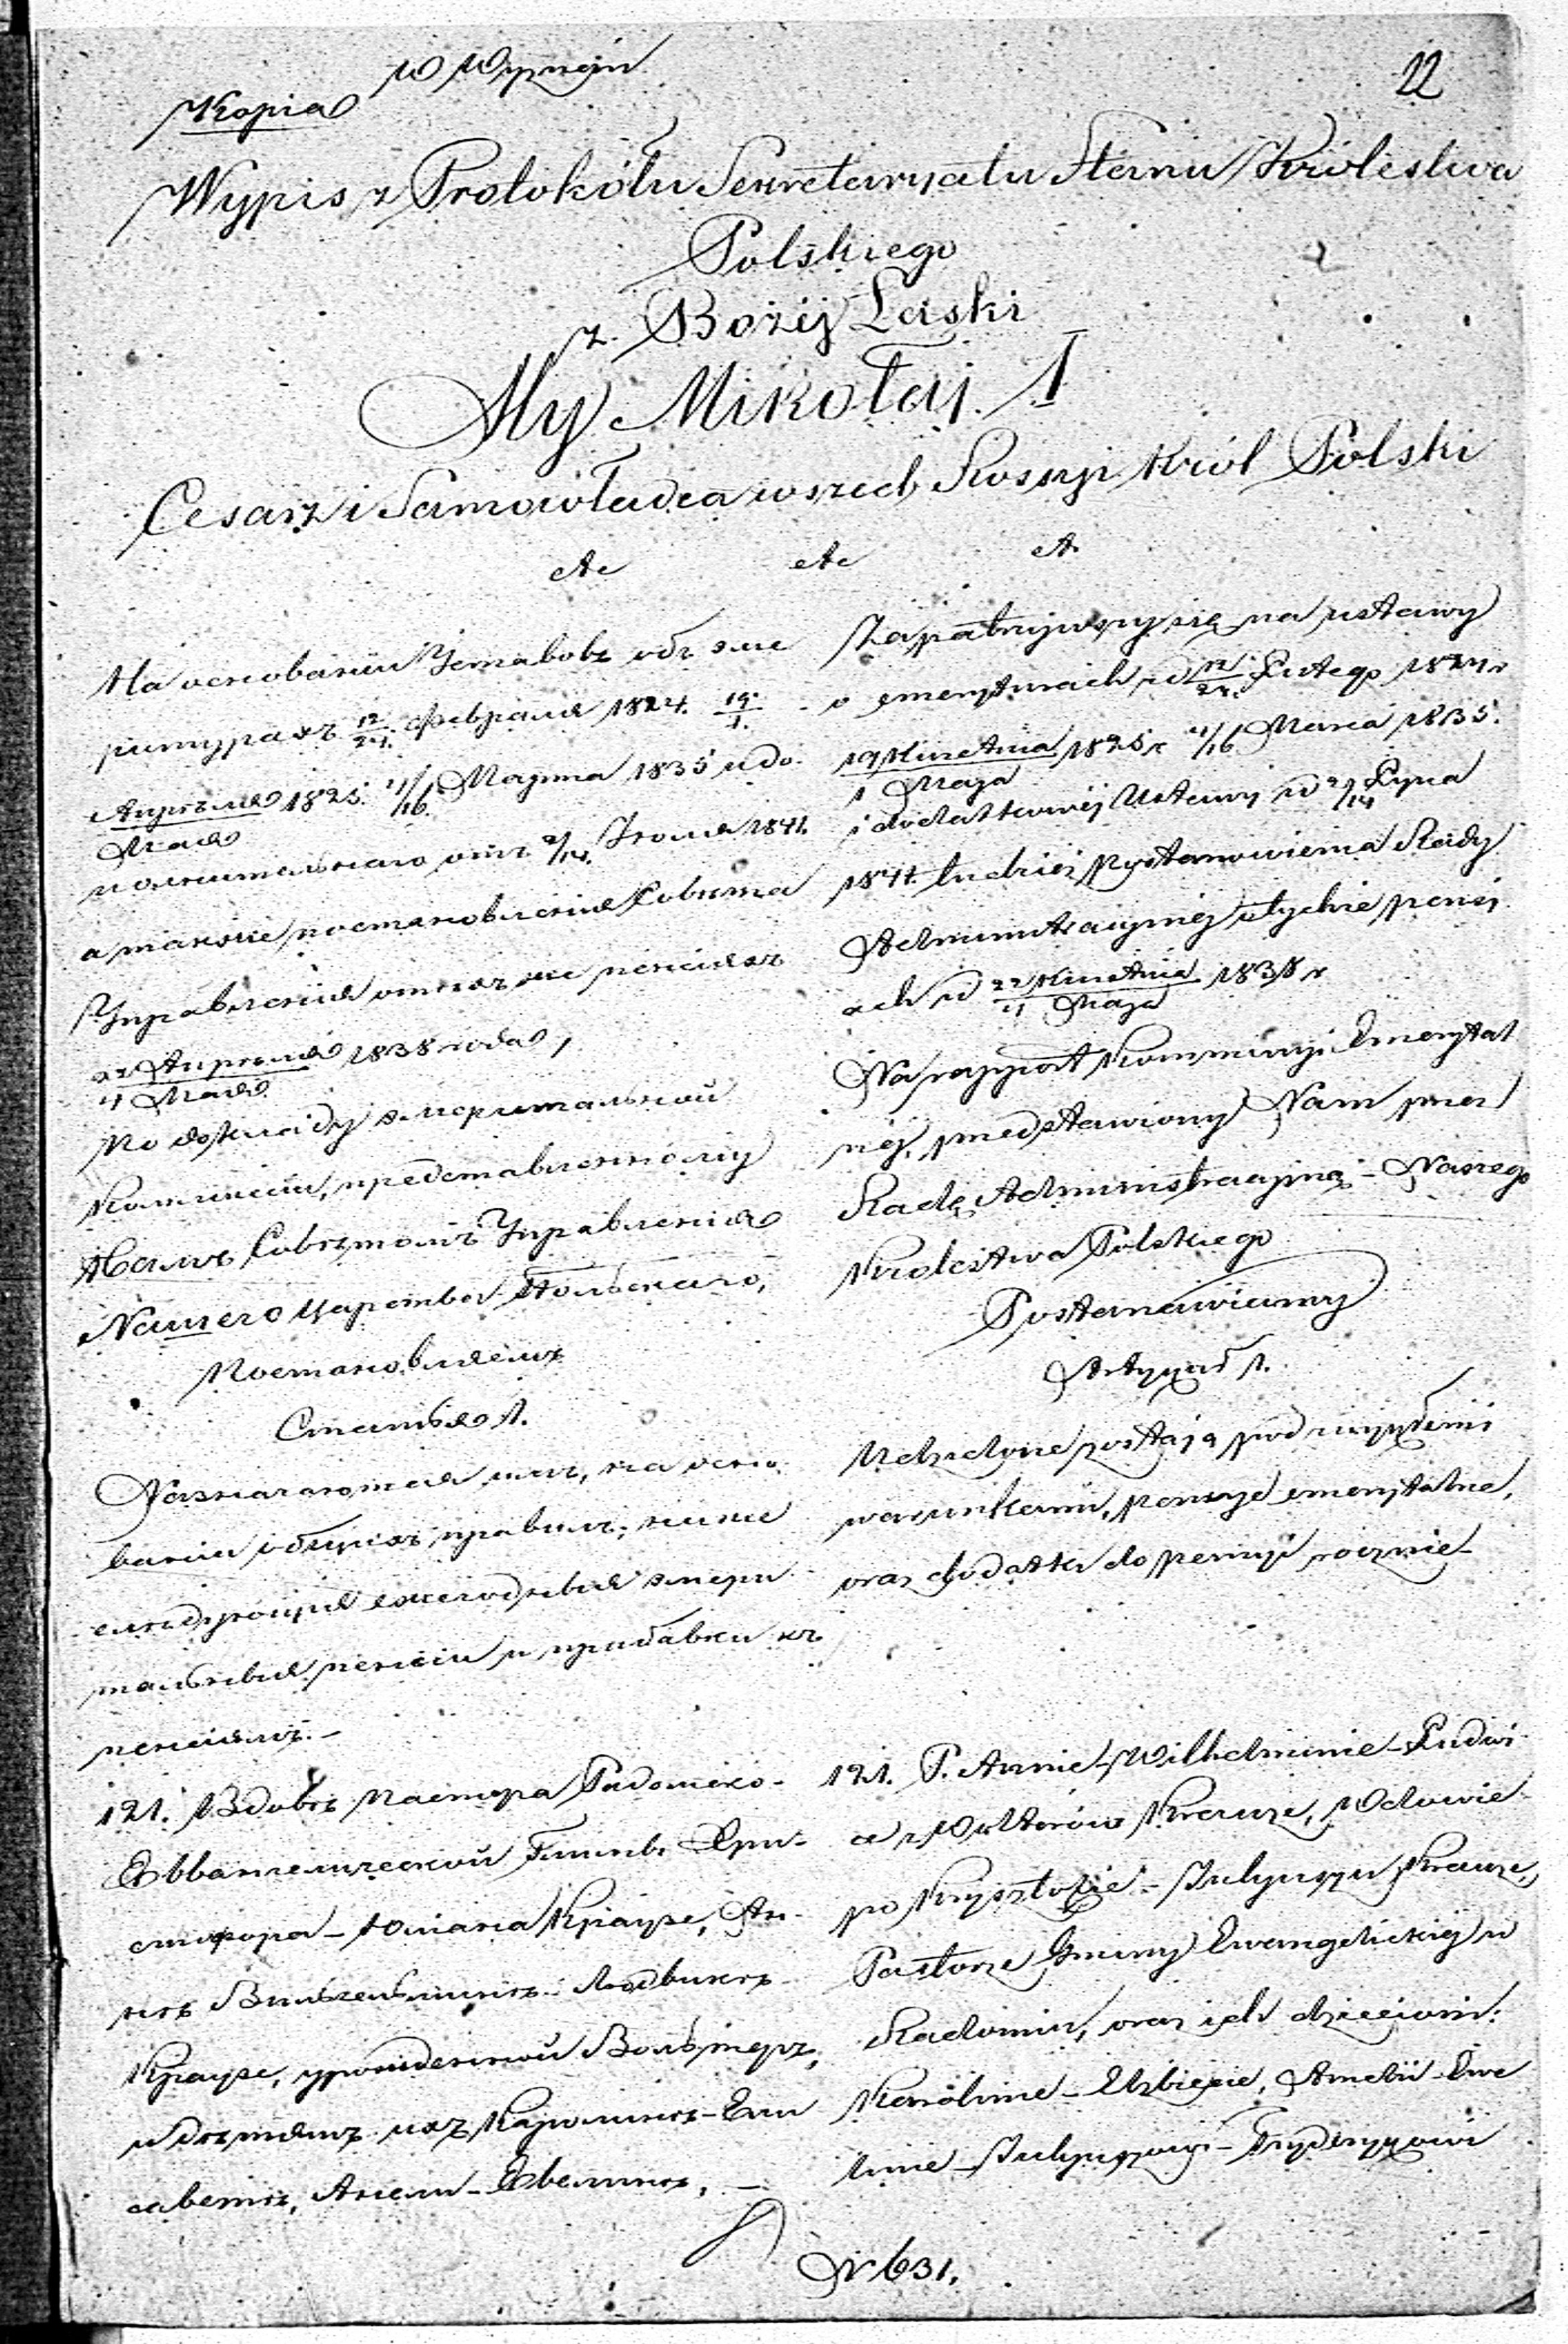 w Wypisie
22
Kopia
Wypis z Protokółu Sekretaryatu Stanu Królestwa
Polskiego
z Bożej Łaski
My Mikołaj I
Cesarz i Samowładca wszech Rossyi Król Polski
etc etc etc
На основаніи Уставовъ объ эме
ритурахъ 12/24 Февраля 1824. 19/1
Апрѣля 1825. 4/16 Марта 1835 и до
Мая
полнительнаго отъ 2/14 Іюля 1841.
а также постановленія Совѣта
Управленія о тѣхъ же пенсіяхъ
22 Апрѣля 1838 года,
4 Мая
По докладу эмеритальной
Коммисіи, представленному
Намъ Совѣтомъ Управленія
Нашего Царства Польскаго,
Постановляемъ
Статья 1.
Назначаются имъ, на осно
ваніи общихъ правилъ, ниже
слѣдующія ежегодныя эмери
тальныя пенсіи и прибавки къ
пенсіямъ.-
121. Вдовѣ Пастора Радомско-
Евангелической Гмины Хри-
стофора-Юліана Краузе, Ан-
нѣ Вильгельминѣ-Людвикѣ
Краузе, урожденной Вольтеръ,
и дѣтямъ ихъ Каролинѣ-Ели
саветѣ, Амели-Эвелинѣ, -
Zapatrzywszy się na ustawy
o emeryturach z d 12/24 Lutego 1824 r
19 Kwietnia 1825 r 4/16 Marca 1835.
1 Maja
i dodatkowéj Ustawy z d 2/14 Lipca
1841. tudzież postanowienia Rady
Administracyjnéj o tychże pensj
ach z d 22 Kwietnia 1838 r
4 Maja
Na rapport Kommissyi Emerytal
néj, przedstawiony Nam przez
Radę Administracyjną - Naszego
Królestwa Polskiego
Postanawiamy
Artykuł 1.
Udzielone zostają pod zwykłemi
warunkami, pensye emerytalne,
oraz dodatki do pensyi rocznie-
121. P. Annie-Wilhelminie-Ludwi
ce z Wolterów Krauze, Wdowie
po Krysztofie-Julijuszu Krauze,
Pastorze Gminy Ewangelickiéj w
Radomiu, oraz ich dzieciom:
Karolinie-Elżbiecie, Amelii-Ewe
linie-Julijuszowi-Fryderykowi
Nr 631.